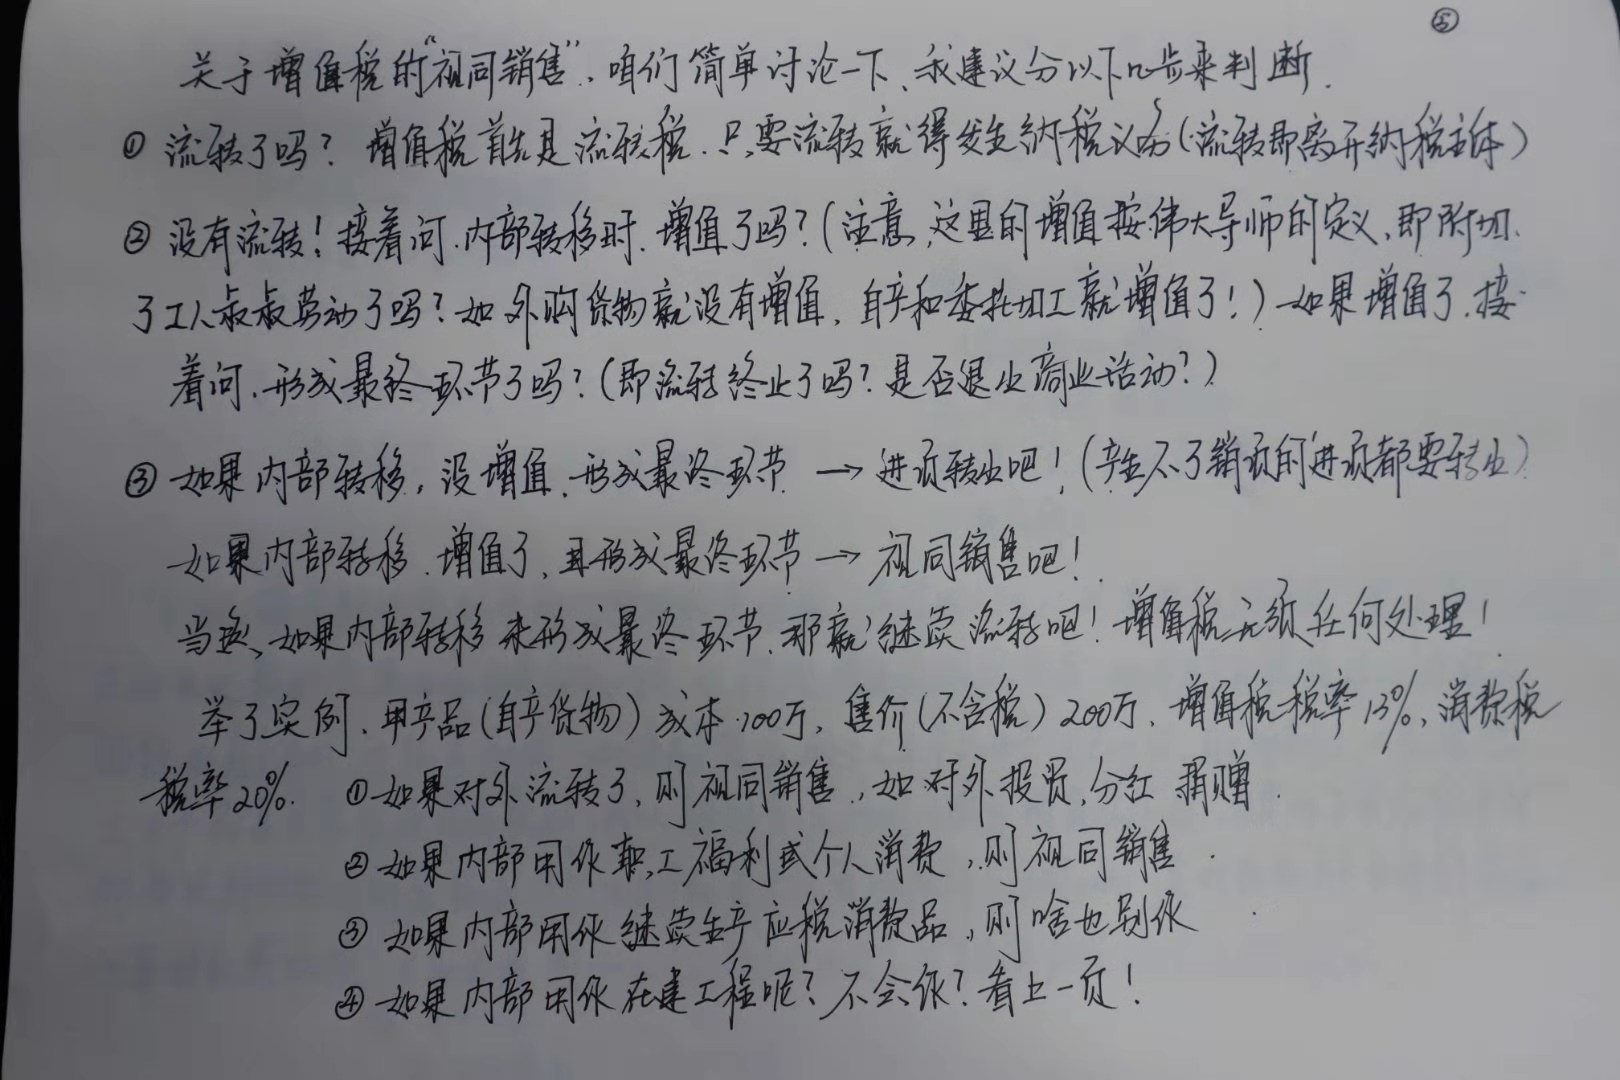 ⑤
关于增值税的“视同销售”、咱们简单讨论一下、我建议分以下几步来判断.
① 流转了吗? 增值税首先是流转税.只要流转就得发生纳税义务(流转即离开纳税主体)
② 没有流转!接着问.内部转移时.增值了吗?(注意,这里的增值按伟大导师的定义,即附加.
了工人叔叔劳动了吗?如外购货物就没有增值,自产和委托加工就增值了!)如果增值了.接
着问.形成最终环节了吗?(即流转终止了吗?是否退出商业活动?)
③ 如果内部转移,没增值.形成最终环节 → 进项转出吧!(产生不了销项的进项都要转出)
如果内部转移.增值了、且形成最终环节 → 视同销售吧!
当然、如果内部转移未形成最终环节.那就继续流转吧!增值税无须任何处理!
举了实例.甲产品(自产货物)成本100万,售价(不含税)200万.增值税税率13%,消费税
税率20%. ①如果对外流转了,则视同销售,如对外投资,分红 捐赠.
②如果内部用作职工福利或个人消费,则视同销售.
③ 如果内部用作继续生产应税消费品,则啥也别作
④ 如果内部用作在建工程呢?不会作?看上一页!